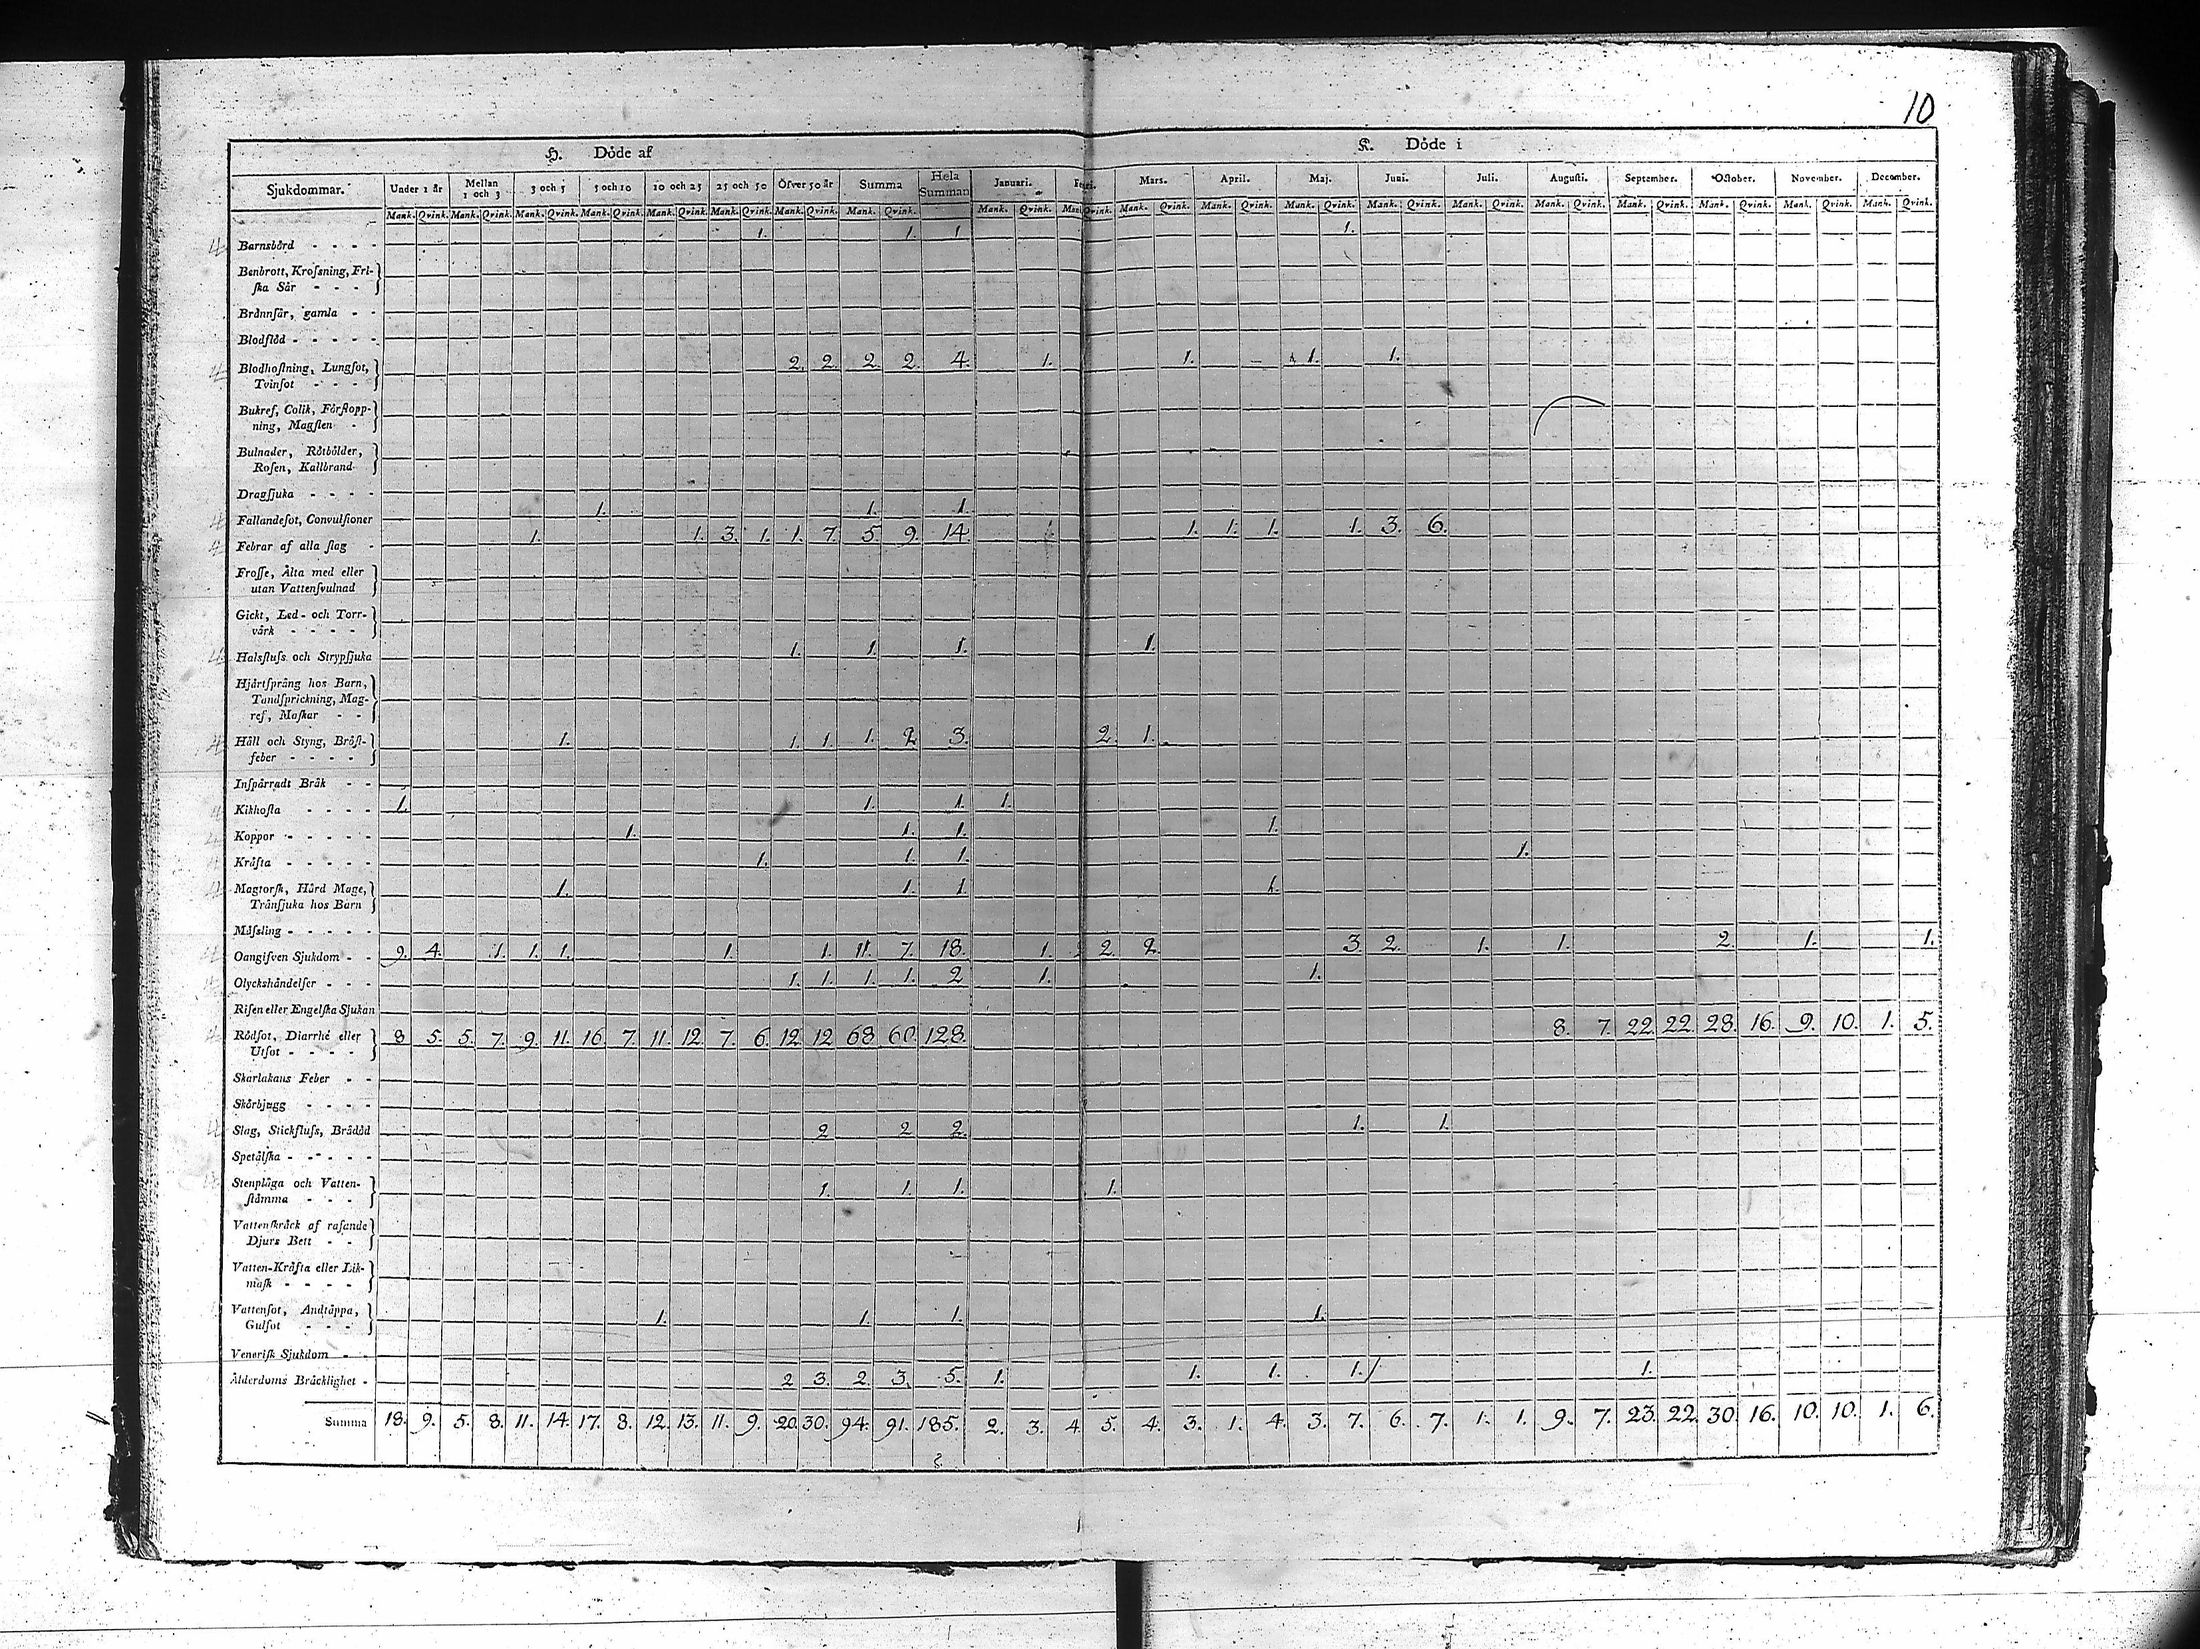 10
H. Döde af K. Döde i
Sjukdommar. Under 1 år Mellan 1 och 3 3 och 5 5 och 10 10 och 25 25 och 50 Öfver 50 år Summa Hela Summan Januari. Mars. April. Maj. Juni. Juli. Augusti. September. October. November. December.
Mank. Qvink. Mank. Qvink. Mank. Qvink. Mank. Qvink. Mank. Qvink. Mank. Qvink. Mank. Qvink. Mank. Qvink. Mank. Qvink. Mank. Qvink. Mank. Qvink. Mank. Qvink. Mank. Qvink. Mank. Qvink. Mank. Qvink. Mank. Qvink. Mank. Qvink. Mank. Qvink. Mank. Qvink. Mank. Qvink.
Barnsbörd - - - - 1. 1. 1 1.
Benbrott, Krofsning, Fri-
ska Sår - - -
Brännsår, gamla - -
Blodflöd - - - - -
Blodhostning, Lungsot, 2. 2. 2. 2. 4. 1. 1. 1. 1.
Tvinsot - - - -
Bukref, Colik, Förstopp-
ning, Magsten -
Bulnader, Rötbölder,
Rosen, Kallbrand
Dragsjuka - - - -
Fallandesot, Convulsioner 1. 1. 1.
Febrar af alla slag - 1. 1. 3. 1. 1. 7. 5. 9. 14. 1. 1. 1. 1. 1. 3. 6.
Frosse, Älta med eller
utan Vattensvulnad
Gickt, Led- och Torr-
värk - - - -
Halsfluss och Strypsjuka 1. 1. 1. 1.
Hjärtsprång hos Barn,
Tandsprickning, Mag-
ref, Maskar - -
Håll och Styng, Bröst- 1. 1. 1. 1. 2. 3. 2. 1.
feber - - - -
Inspärradt Bråk - -
Kikhosta - - - - 1. 1. 1. 1.
Koppor - - - - - 1. 1. 1. 1.
Kräfta - - - - - 1. 1. 1. 1.
Magtorsk, Hård Mage, 1. 1. 1. 1.
Tränsjuka hos Barn
Mässling - - - - -
Oangifven Sjukdom - - 9. 4. 1. 1. 1. 1. 1. 11. 7. 18. 1. 2 2. 2. 3 2. 1. 1. 2. 1. 1.
Olyckshändelser - - - 1. 1. 1. 1. 2 1. 1.
Risen eller Engelska Sjukan
Rödsot, Diarrhé eller 8 5. 5. 7. 9. 11. 16. 7. 11. 12. 7. 6. 12. 12 68. 60. 128. 8. 7. 22. 22. 28. 16. 9. 10. 1. 5.
Utsot - - - -
Skarlakans Feber - -
Skörbjugg - - - -
Slag, Stickfluss, Brådöd 2 2 2. 1. 1.
Spetälska - - - - -
Stenplåga och Vatten- 1. 1. 1. 1.
stämma - - -
Vattenskräck af rasande
Djurs Bett - -
Vatten-Kräfta eller Lik-
mask - - - -
Vattensot, Andtäppa, 1. 1. 1. 1.
Gulsot - - -
Venerisk Sjukdom - -
Ålderdoms Bräcklighet - 2 3. 2. 3. 5. 1. 1. 1. 1. 1.
Summa 18. 9. 5. 8. 11. 14. 17. 8. 12. 13. 11. 9. 20. 30. 94. 91. 185. 2. 3. 4. 5. 4. 3. 1. 4. 3. 7. 6. 7. 1. 1. 9. 7. 23. 22. 30. 16. 10. 10. 1. 6.